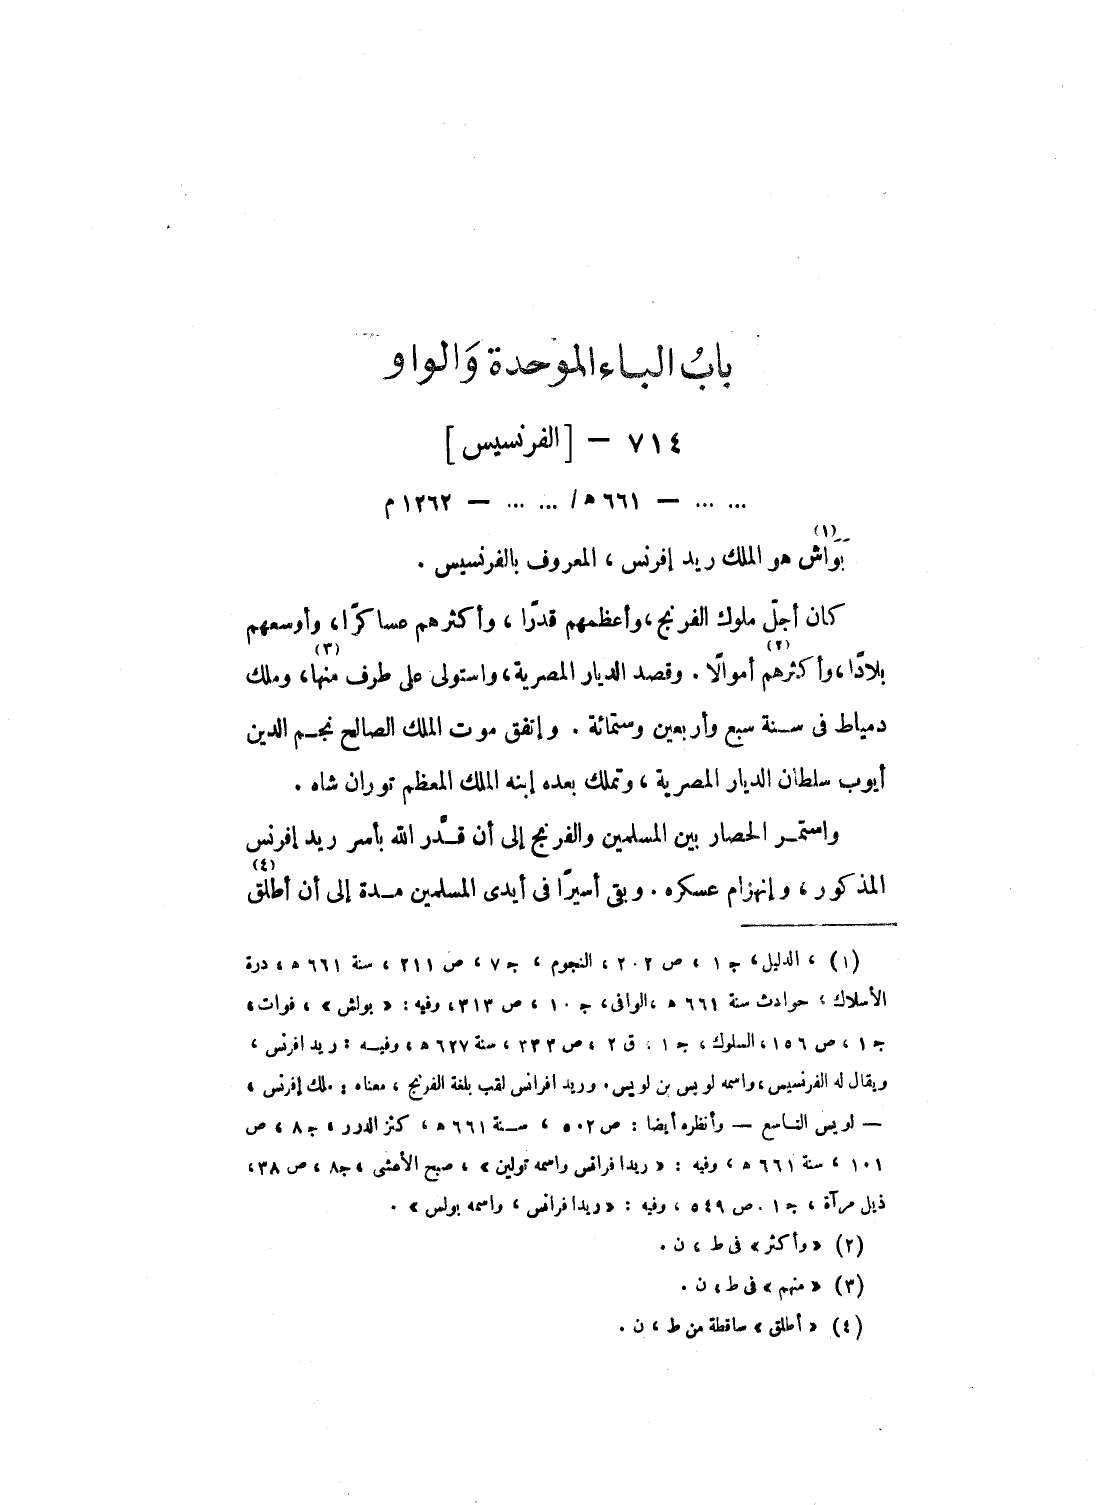 بابُ الباء الموحدة وَالواو
٧١٤ – [الفرنسيس]
... ... – ٦٦١ ه / ... ... – ١٢٦٢ م
بَوَاش (١) هو الملك ريد إفرنس ، المعروف بالفرنسيس .
كان أجلّ ملوك الفرنج ، وأعظمهم قدرًا ، وأكثرهم عساكرًا ، وأوسعهم
بلادًا ، وأكثرهم (٢) أموالًا . وقصد الديار المصرية ، واستولى على طرف منها (٣) ، وملك
دمياط فى سنة سبع وأربعين وستمائة . وإتفق موت الملك الصالح نجم الدين
أيوب سلطان الديار المصرية ، وتملك بعده إبنه الملك المعظم توران شاه .
واستمر الحصار بين المسلمين والفرنج إلى أن قدَّر الله بأسر ريد إفرنس
المذكور ، وإنهزام عسكره . وبقى أسيرًا فى أيدى المسلمين مدة إلى أن أطلق (٤)
(١) ، الدليل ، ج ١ ، ص ٢٠٢ ، النجوم ، ج ٧ ، ص ٢١١ ، سنة ٦٦١ ه ، درة
الأسلاك ؛ حوادث سنة ٦٦١ ه ، الوافى ، ج ١٠ ، ص ٣١٣ ، وفيه : « بولش » ، فوات ،
ج ١ ، ص ١٥٦ ، السلوك ، ج ١ ، ق ٢ ، ص ٣٣٣ ، سنة ٦٢٧ ه ، وفيه : ريد افرنس ،
ويقال له الفرنسيس ، واسمه لويس بن لويس . وريد افرانس لقب بلغة الفرنج ، معناه : ملك إفرنس ،
— لويس التاسع — وأنظره أيضا : ص ٥٠٢ ، سنة ٦٦١ ه ، كنز الدرر ، ج ٨ ، ص
١٠١ ، سنة ٦٦١ ه ، وفيه : « ريدا فرانس واسمه تولين » ، صبح الأعشى ، ج ٨ ، ص ٣٨ ،
ذيل مرآة ، ج ١ . ص ٥٤٩ ، وفيه : « ريدا فرانس ، واسمه بولس » .
(٢) « وأكثر » فى ط ، ن .
(٣) « منهم » فى ط ، ن .
(٤) « أطلق » ساقطة من ط ، ن .